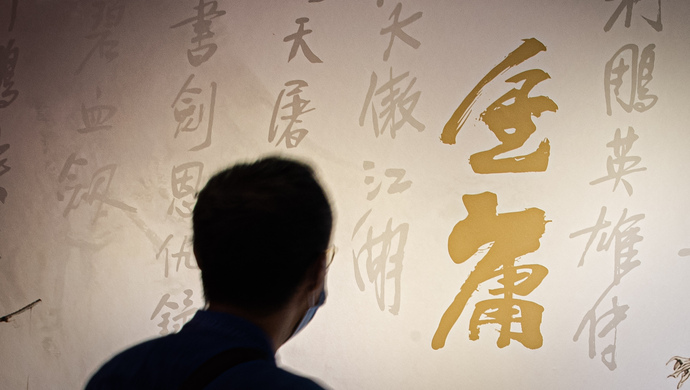 射鵰英雄傳
金庸
笑傲江湖
天屠
書劍恩仇錄
碧血劍